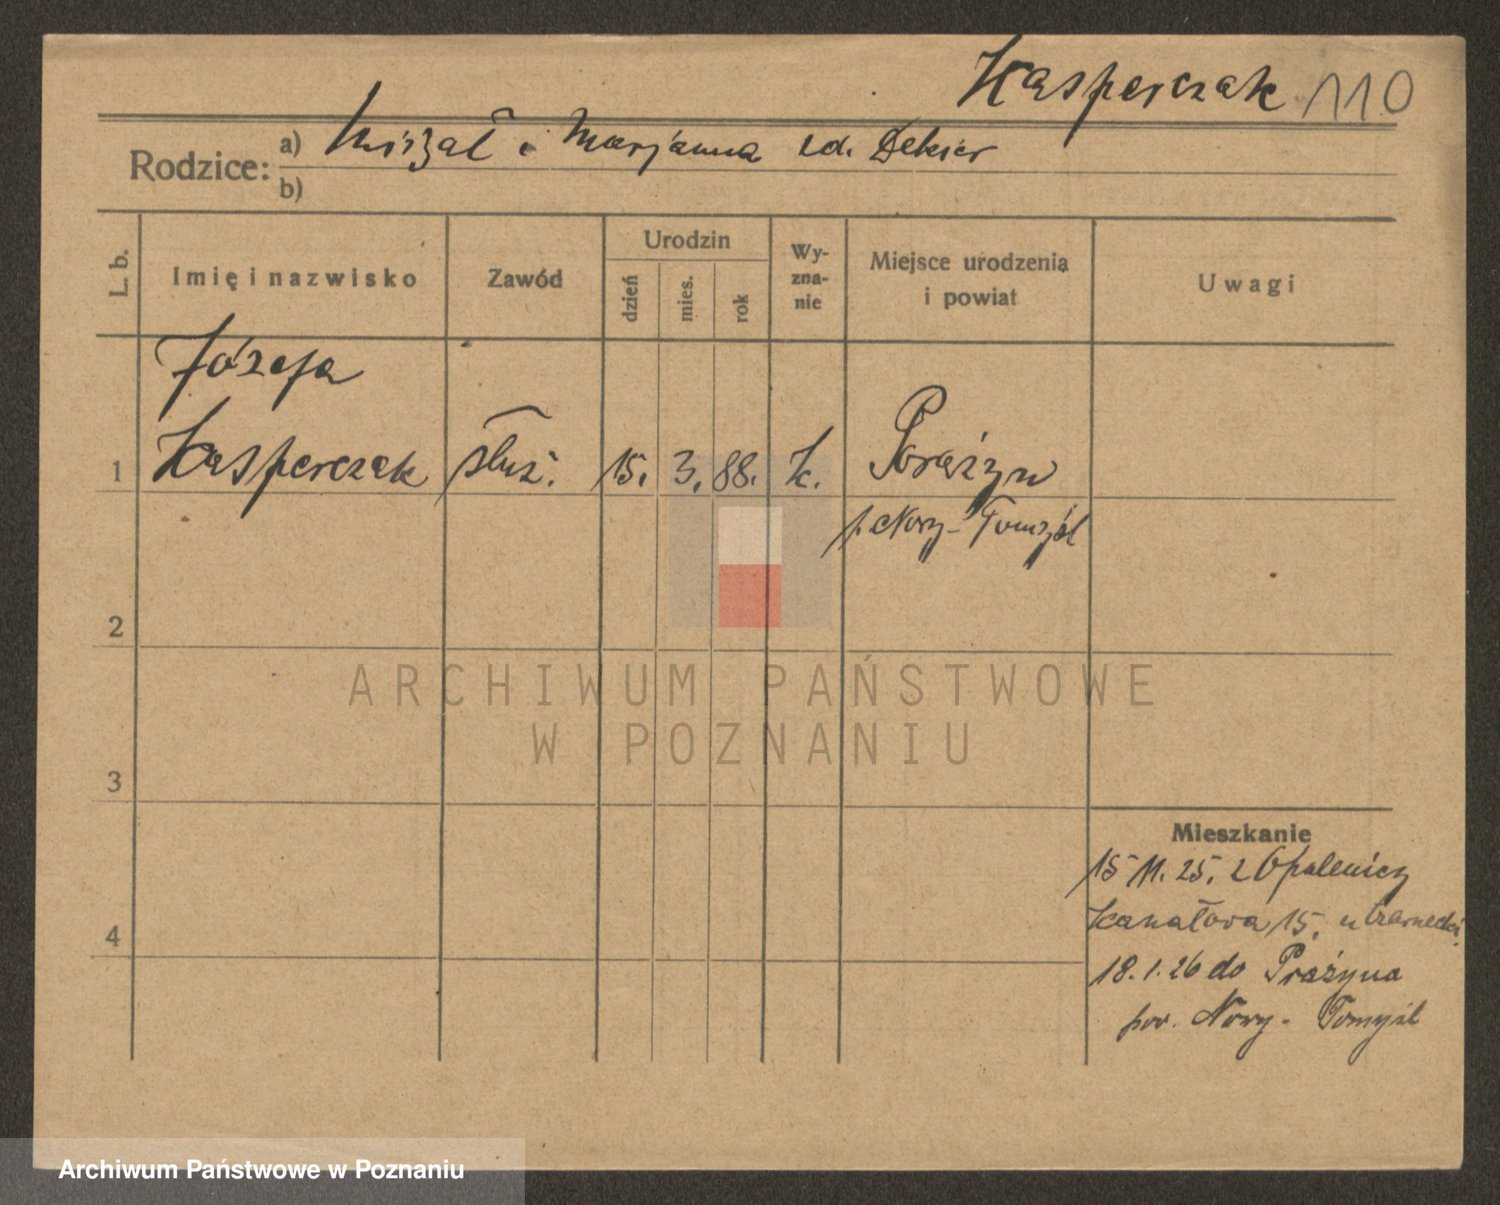 Kasperczak 110
Rodzice: a) Michał i Marjanna zd. Dekier
b)
L. b. Imię i nazwisko Zawód Urodzin dzień mies. rok Wyznanie Miejsce urodzenia i powiat Uwagi
Józefa
1 Kasperczak służ. 15. 3. 88. k. Porażyn
p. Nowy-Tomyśl
2
3
4
Mieszkanie
15 11. 25. z Opalenicy
Kanałowa 15. u Czarnecki
18.1.26 do Prażyna
pow. Nowy-Tomyśl
ARCHIWUM PAŃSTWOWE
W POZNANIU
Archiwum Państwowe w Poznaniu